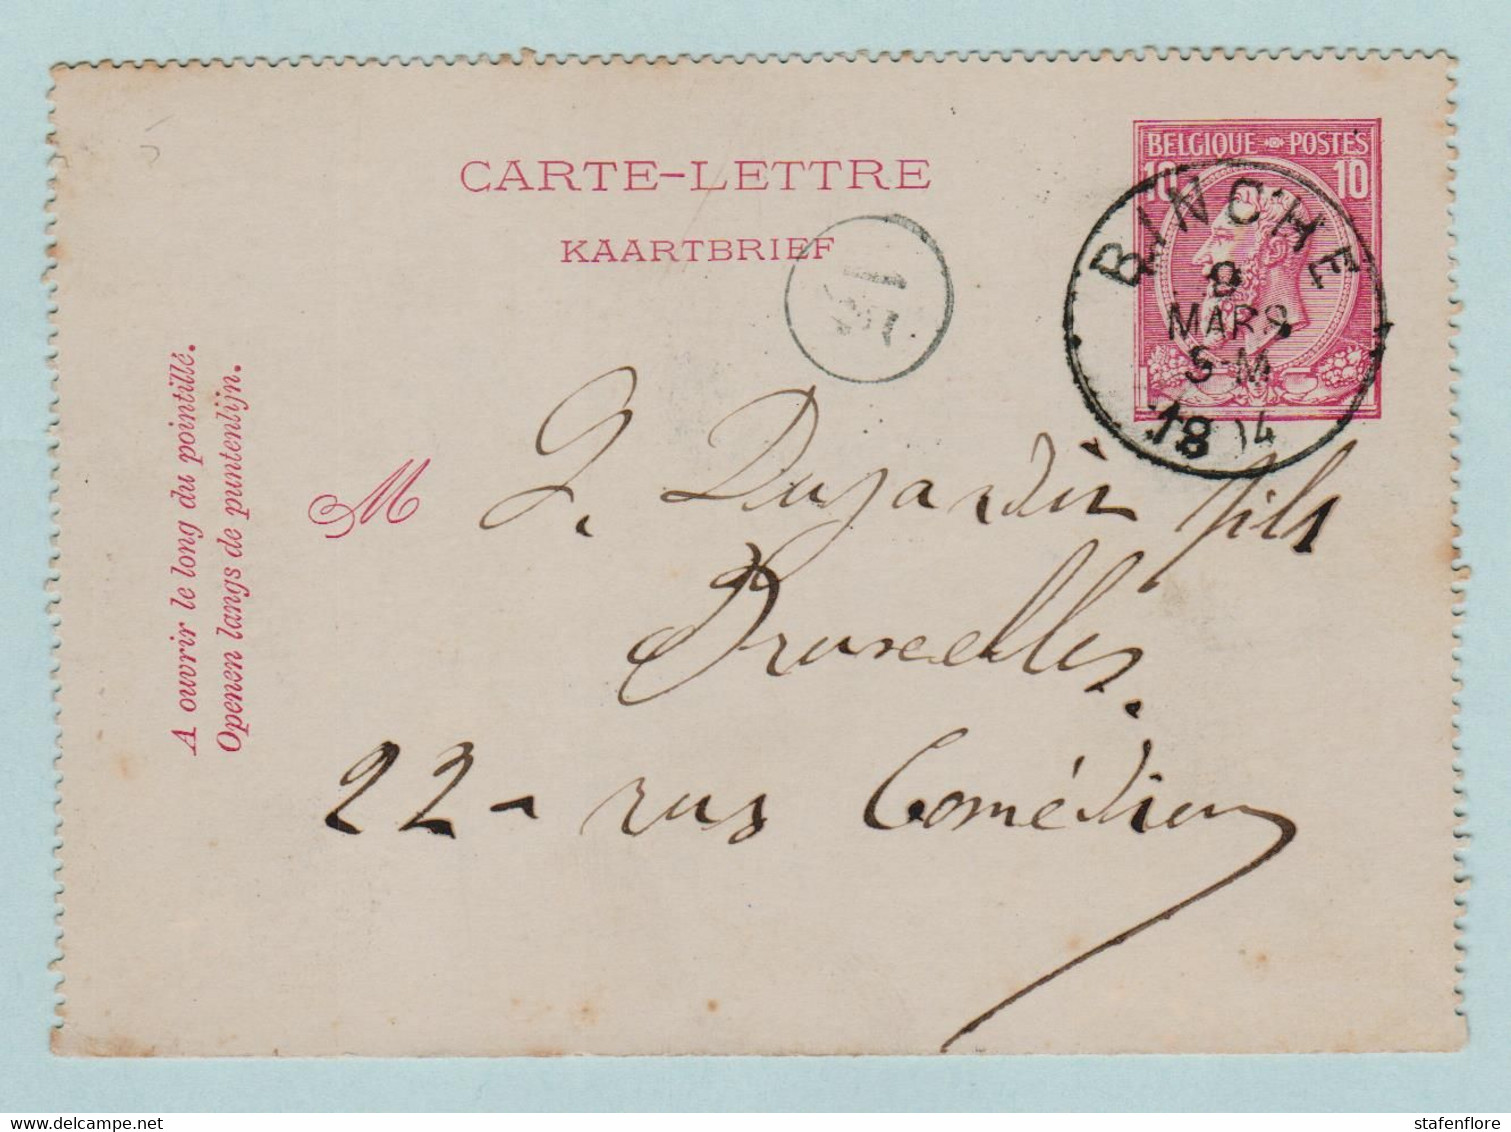 BELGIQUE POSTES
10 10
CARTE-LETTRE
KAARTBRIEF
BINCHE
8
MARS
5-M
18 4
1
M J. Dujardin fils
Bruxelles.
22 - rue Comédien
A ouvrir le long du pointillé.
Openen langs de puntenlijn.
stafenflore